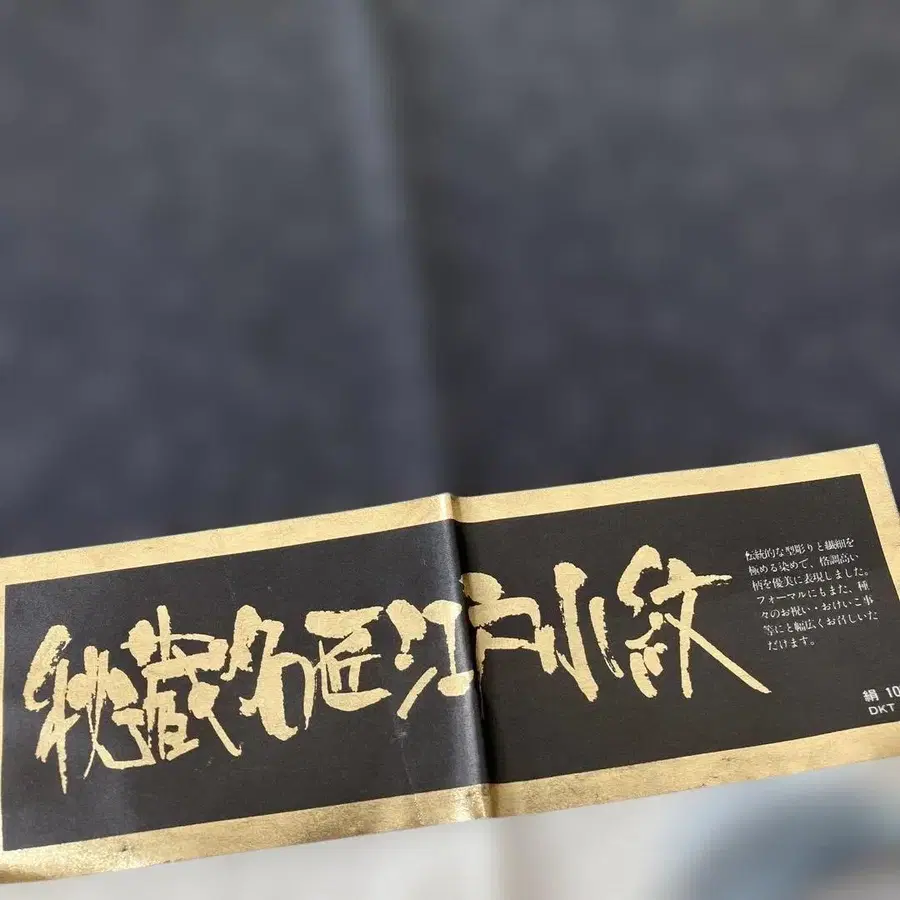 秘蔵名匠江戸小紋
伝統的な型彫りと繊細を
極める染めで、格調高い
柄を優美に表現しました。
フォーマルにもまた、種
々のお祝い・おけいこ事
等にと幅広くお召しいた
だけます。
絹 10
DKT